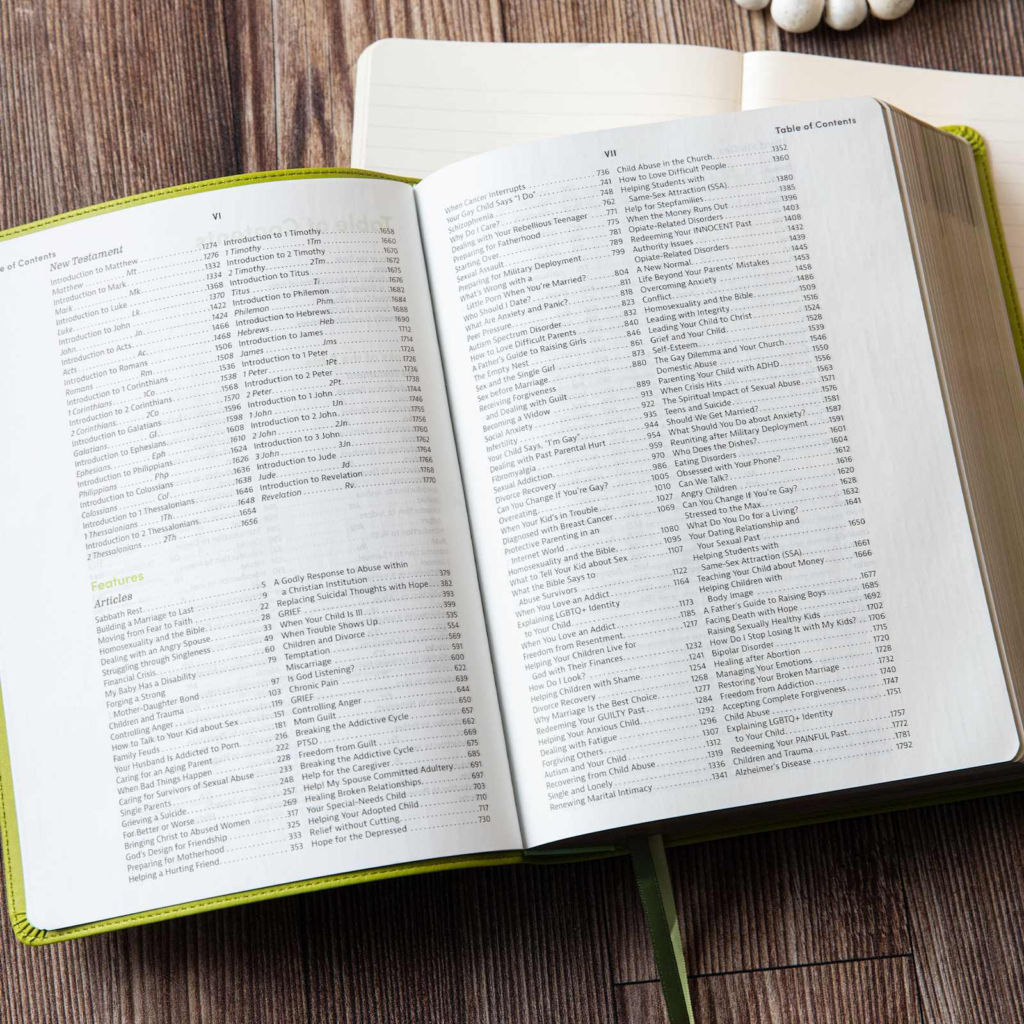 VI
e of Contents
New Testament
Introduction to Matthew 1274
Matthew Mt
Introduction to Mark 1332
Mark Mk 1334
Introduction to Luke 1368
Luke Lk 1370
Introduction to John 1422
John Jn 1424
Introduction to Acts 1466
Acts Ac 1468
Introduction to Romans 1506
Romans Rm 1508
Introduction to 1 Corinthians 1536
1 Corinthians 1Co 1538
Introduction to 2 Corinthians 1568
2 Corinthians 2Co 1570
Introduction to Galatians 1596
Galatians Gl 1598
Introduction to Ephesians 1608
Ephesians Eph 1610
Introduction to Philippians
Philippians Php 1626
Introduction to Colossians 1636
Colossians Col 1638
Introduction to 1 Thessalonians 1646
1 Thessalonians 1Th 1648
Introduction to 2 Thessalonians 1654
2 Thessalonians 2Th 1656
Introduction to 1 Timothy 1658
1 Timothy 1Tm 1660
Introduction to 2 Timothy 1670
2 Timothy 2Tm 1672
Introduction to Titus 1675
Titus Ti 1676
Introduction to Philemon 1682
Philemon Phm 1684
Introduction to Hebrews 1688
Hebrews Heb 1690
Introduction to James 1712
James Jms 1714
Introduction to 1 Peter 1724
1 Peter 1Pt 1726
Introduction to 2 Peter 1736
2 Peter 2Pt 1738
Introduction to 1 John 1744
1 John 1Jn 1746
Introduction to 2 John
2 John 2Jn
Introduction to 3 John
3 John 3Jn
Introduction to Jude 1764
Jude Jd 1766
Introduction to Revelation 1768
Revelation Rv 1770
Features
Articles
Sabbath Rest 5
Building a Marriage to Last 9
Moving from Fear to Faith 22
Homosexuality and the Bible 28
Dealing with an Angry Spouse 33
Struggling through Singleness 49
Financial Crisis 60
My Baby Has a Disability 79
Forging a Strong
Mother-Daughter Bond 97
Children and Trauma 103
Controlling Anger 119
How to Talk to Your Kid about Sex 151
Family Feuds 181
Your Husband Is Addicted to Porn 216
Caring for an Aging Parent 222
When Bad Things Happen 228
Caring for Survivors of Sexual Abuse 233
Single Parents 248
Grieving a Suicide 257
For Better or Worse 269
Bringing Christ to Abused Women 317
God's Design for Friendship 325
Preparing for Motherhood 333
Helping a Hurting Friend 353
A Godly Response to Abuse within
a Christian Institution 378
Replacing Suicidal Thoughts with Hope 382
GRIEF 393
When Your Child Is Ill 399
When Trouble Shows Up 535
Children and Divorce 554
Temptation 569
Miscarriage 591
Is God Listening? 600
Chronic Pain 622
GRIEF 639
Controlling Anger 644
Mom Guilt 650
Breaking the Addictive Cycle 657
PTSD 662
Freedom from Guilt 669
Breaking the Addictive Cycle 675
Help for the Caregiver 685
Help! My Spouse Committed Adultery 691
Healing Broken Relationships 697
Your Special-Needs Child 703
Helping Your Adopted Child 710
Relief without Cutting 717
Hope for the Depressed 730
VII
Table of Contents
When Cancer Interrupts 736
Your Gay Child Says "I Do" 741
Schizophrenia 748
Why Do I Care? 762
Dealing with Your Rebellious Teenager 771
Preparing for Fatherhood 775
Starting Over 781
Sexual Assault 789
Preparing for Military Deployment 799
What's Wrong with a
Little Porn When You're Married? 804
Who Should I Date? 811
What Are Anxiety and Panic? 818
Peer Pressure 823
Autism Spectrum Disorder 832
How to Love Difficult Parents 840
A Father's Guide to Raising Girls 846
The Empty Nest 861
Sex and the Single Girl 873
Sex before Marriage 880
Receiving Forgiveness
and Dealing with Guilt 889
Becoming a Widow 913
Social Anxiety 922
Infertility 935
Your Child Says, "I'm Gay" 944
Dealing with Past Parental Hurt 954
Fibromyalgia 959
Sexual Addiction 970
Divorce Recovery 986
Can You Change If You're Gay? 1005
Overeating 1010
When Your Kid's in Trouble 1027
Diagnosed with Breast Cancer 1069
Protective Parenting in an
Internet World 1080
Homosexuality and the Bible 1095
What to Tell Your Kid about Sex 1107
What the Bible Says to
Abuse Survivors 1122
When You Love an Addict 1164
Explaining LGBTQ+ Identity
to Your Child 1173
When You Love an Addict 1185
Freedom from Resentment 1217
Helping Your Children Live for
God with Their Finances 1232
How Do I Look? 1241
Helping Children with Shame 1254
Divorce Recovery 1268
Why Marriage Is the Best Choice 1277
Redeeming Your GUILTY Past 1284
Helping Your Anxious Child 1292
Dealing with Fatigue 1296
Forgiving Others 1307
Autism and Your Child 1312
Recovering from Child Abuse 1319
Single and Lonely 1336
Renewing Marital Intimacy 1341
Child Abuse in the Church 1352
How to Love Difficult People 1360
Helping Students with
Same-Sex Attraction (SSA) 1380
Help for Stepfamilies 1385
When the Money Runs Out 1396
Opiate-Related Disorders 1403
Redeeming Your INNOCENT Past 1408
Authority Issues 1432
Opiate-Related Disorders 1439
A New Normal 1445
Life Beyond Your Parents' Mistakes 1453
Overcoming Anxiety 1458
Conflict 1486
Homosexuality and the Bible 1509
Leading with Integrity 1516
Leading Your Child to Christ 1524
Grief and Your Child 1528
Self-Esteem 1539
The Gay Dilemma and Your Church 1546
Domestic Abuse 1550
Parenting Your Child with ADHD 1556
When Crisis Hits 1563
The Spiritual Impact of Sexual Abuse 1571
Teens and Suicide 1576
Should We Get Married? 1581
What Should You Do about Anxiety? 1587
Reuniting after Military Deployment 1591
Who Does the Dishes? 1601
Eating Disorders 1604
Obsessed with Your Phone? 1612
Can We Talk? 1616
Angry Children 1620
Can You Change If You're Gay? 1628
Stressed to the Max 1632
What Do You Do for a Living? 1641
Your Dating Relationship and
Your Sexual Past 1650
Helping Students with
Same-Sex Attraction (SSA) 1661
Teaching Your Child about Money 1666
Helping Children with
Body Image 1677
A Father's Guide to Raising Boys 1685
Facing Death with Hope 1692
Raising Sexually Healthy Kids 1702
How Do I Stop Losing It with My Kids? 1706
Bipolar Disorder 1715
Healing after Abortion 1720
Managing Your Emotions 1728
Restoring Your Broken Marriage 1732
Freedom from Addiction 1740
Accepting Complete Forgiveness 1747
Child Abuse 1751
Explaining LGBTQ+ Identity
to Your Child 1757
Redeeming Your PAINFUL Past 1772
Children and Trauma 1781
Alzheimer's Disease 1792